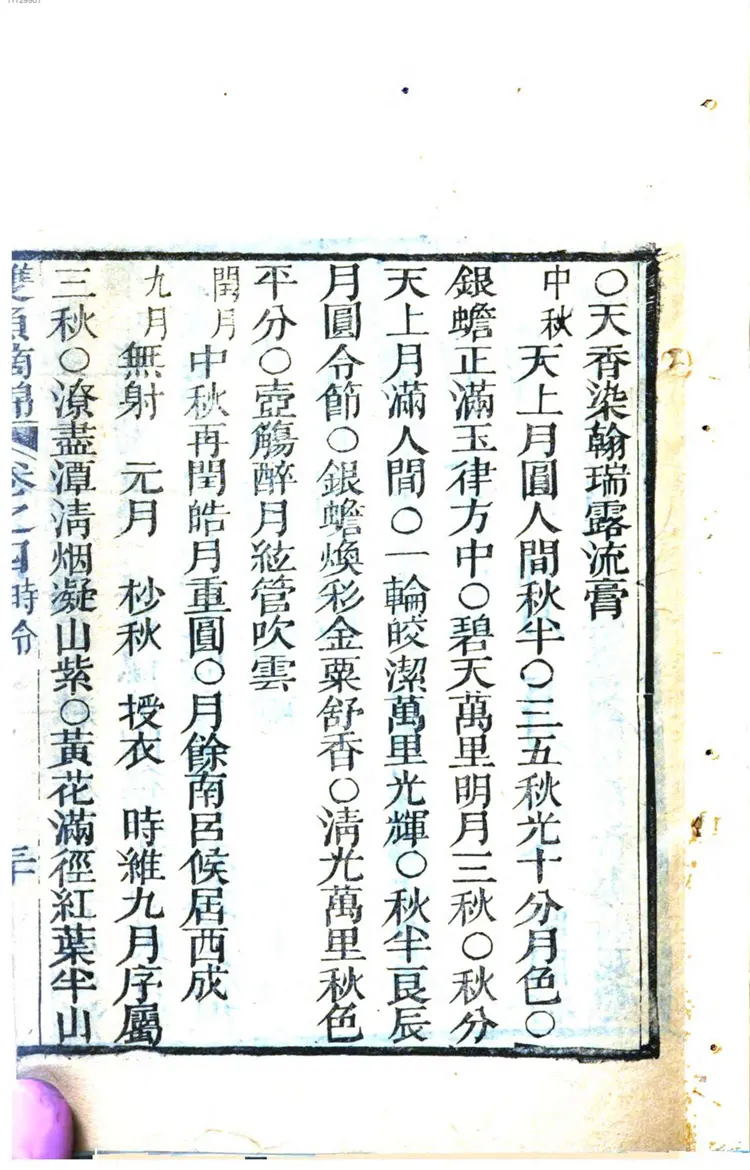 ○天香染翰瑞露流膏
中秋 天上月圓人間秋半○三五秋光十分月色○
銀蟾正滿玉律方中○碧天萬里明月三秋○秋分
天上月滿人間○一輪皎潔萬里光輝○秋半良辰
月圓令節○銀蟾煥彩金粟舒香○淸光萬里秋色
平分○壺觴醉月絃管吹雲
閏月 中秋再閏皓月重圓○月餘南呂候居西成
九月 無射 元月 杪秋 授衣 時維九月序屬
三秋○潦盡潭淸烟凝山紫○黃花滿徑紅葉半山
卷之四 時令